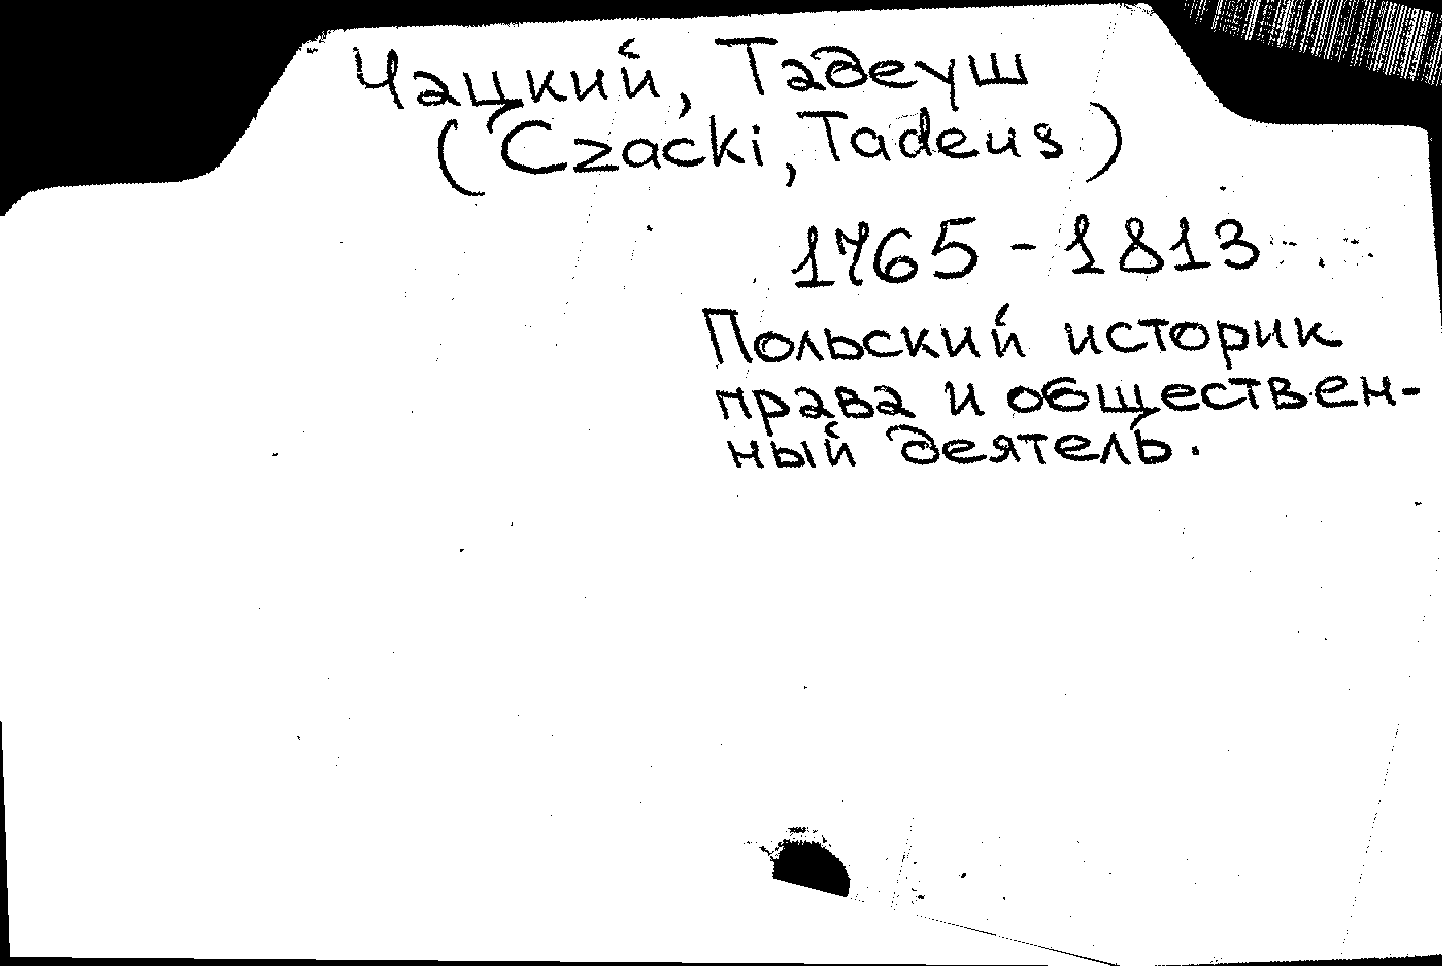 Чацкий, Тадеуш
(Czacki, Tadeus)
1765 - 1813
Польский историк
права и обществен-
ный деятель.